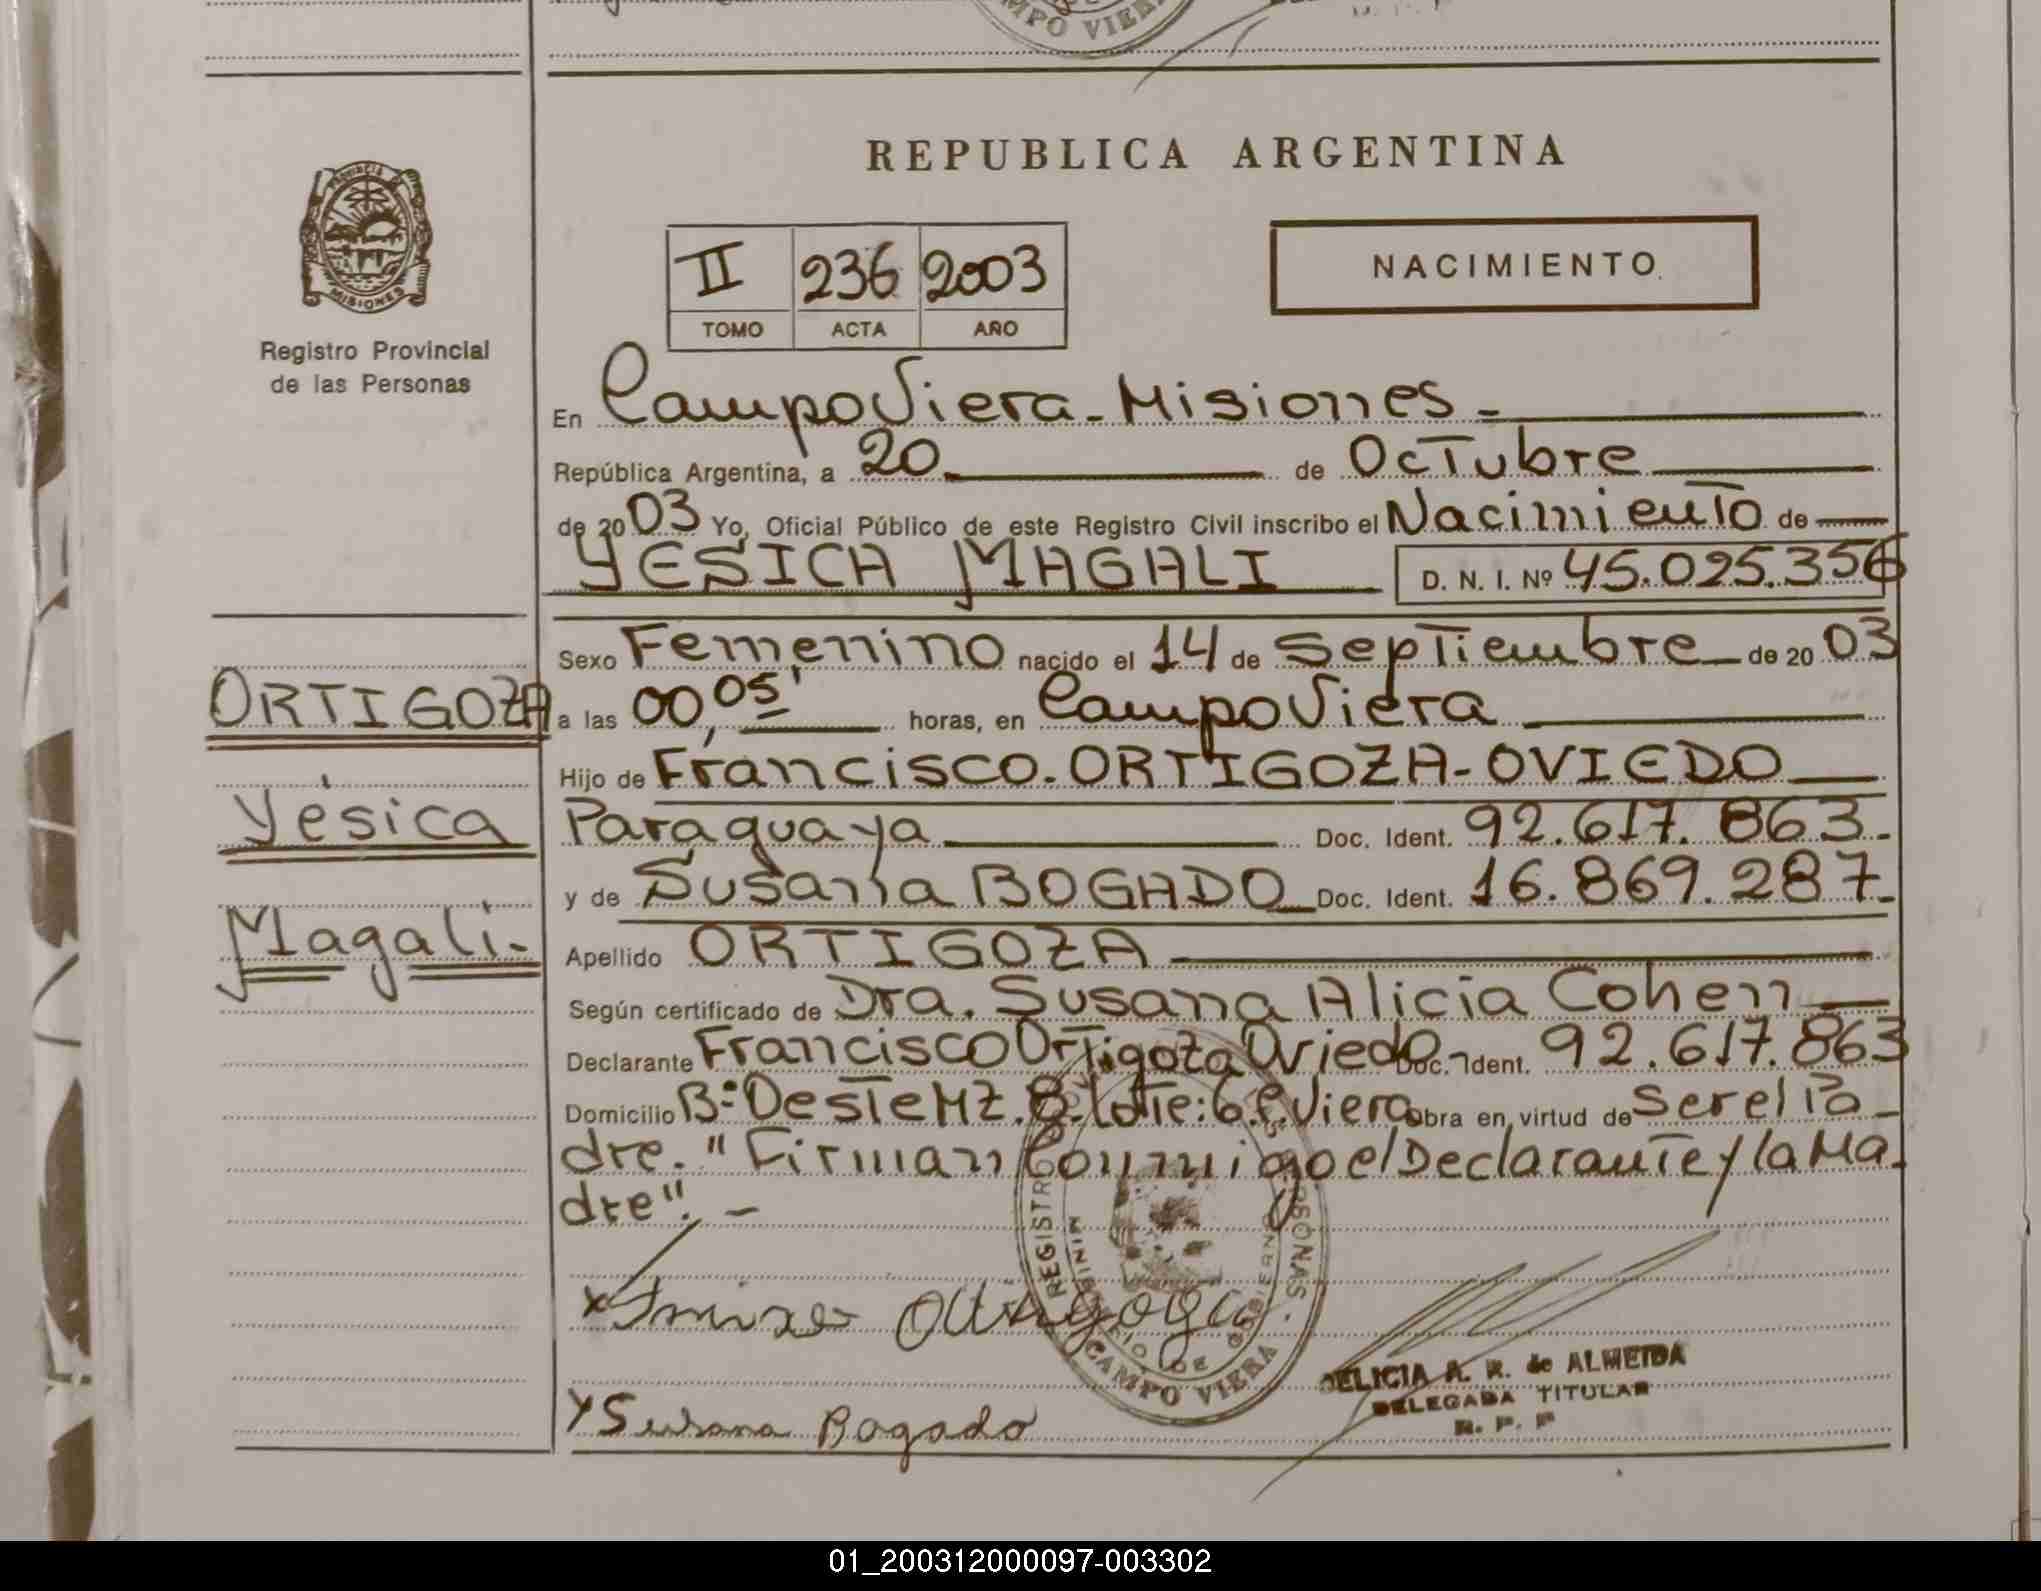 CAMPO VIERA
REPUBLICA ARGENTINA
PROVINCIA DE
MISIONES
II 236 2003
TOMO ACTA AÑO
NACIMIENTO
Registro Provincial
de las Personas
En Campo Viera - Misiones -
República Argentina, a 20 de Octubre
de 2003 Yo, Oficial Público de este Registro Civil inscribo el Nacimiento de
YESICA MAGALI D. N. I. Nº 45.025.356
Sexo Femenino nacido el 14 de Septiembre de 2003
ORTIGOZA
a las 00,05' horas, en Campo Viera
Hijo de Francisco. ORTIGOZA - OVIEDO
Yésica
Paraguaya Doc. Ident. 92.617.863.-
y de Susana BOGADO Doc. Ident. 16.869.287.-
Magali.-
Apellido ORTIGOZA
Según certificado de Dra. Susana Alicia Cohen
Declarante Francisco Ortigoza Oviedo - Doc. Ident. 92.617.863
Domicilio Bº: Oeste Mz. 8. Lote: 6. C. Viera Obra en virtud de Ser el Pa-
dre. "Firman Conmigo el Declarante y la Ma-
dre". -
REGISTRO PERSONAS
MINISTERIO DE GOBIERNO
CAMPO VIERA
x Ortigoza
DELICIA A. R. de ALMEIDA
DELEGADA TITULAR
R. P. P
x Susana Bogado
01_200312000097-003302